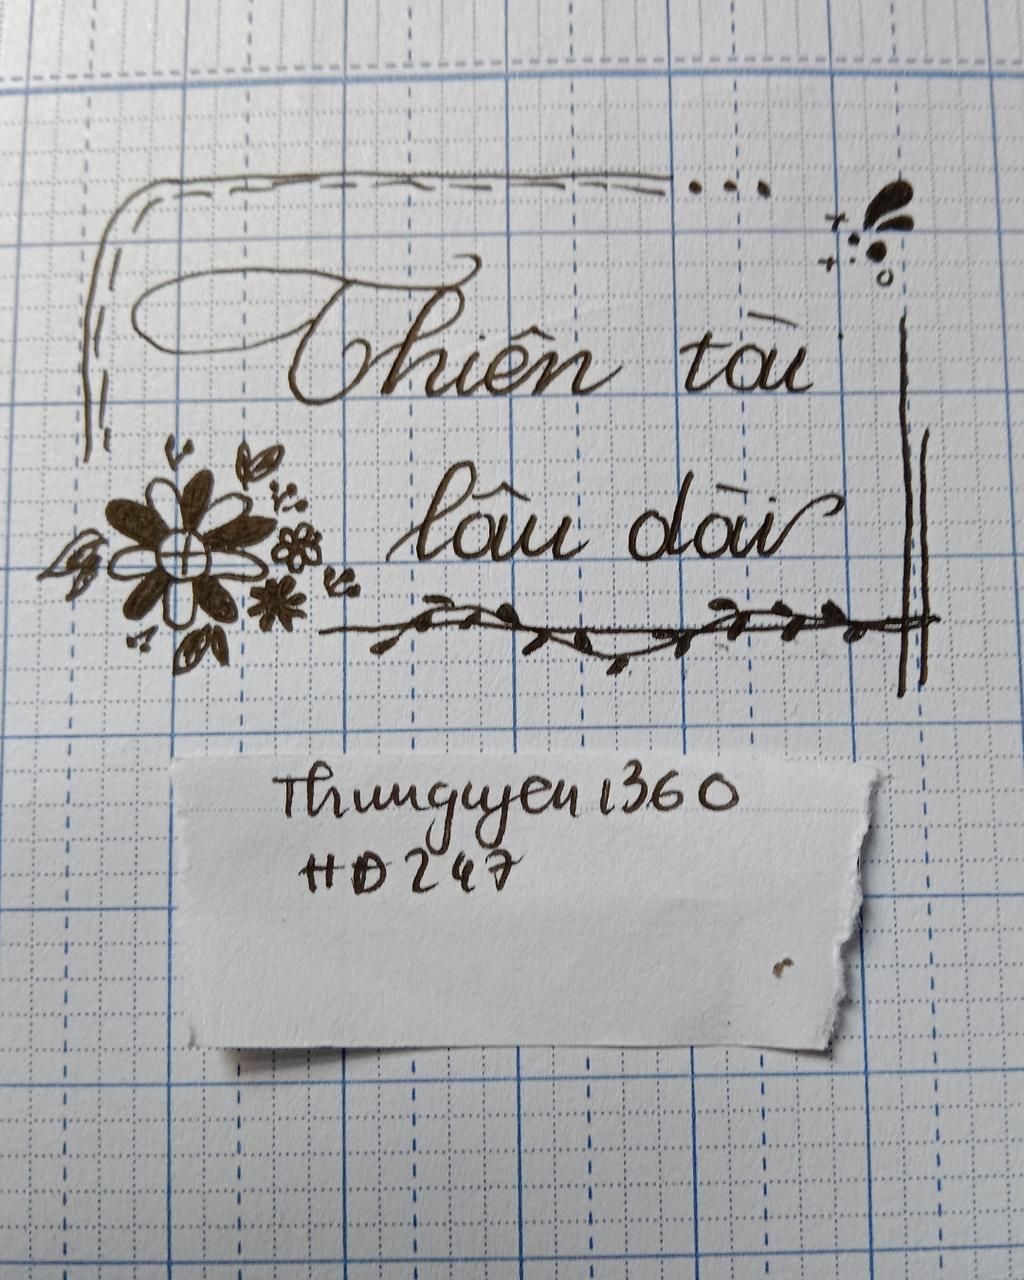 Thiên tài
lâu dài
Thunguyen1360
HD247